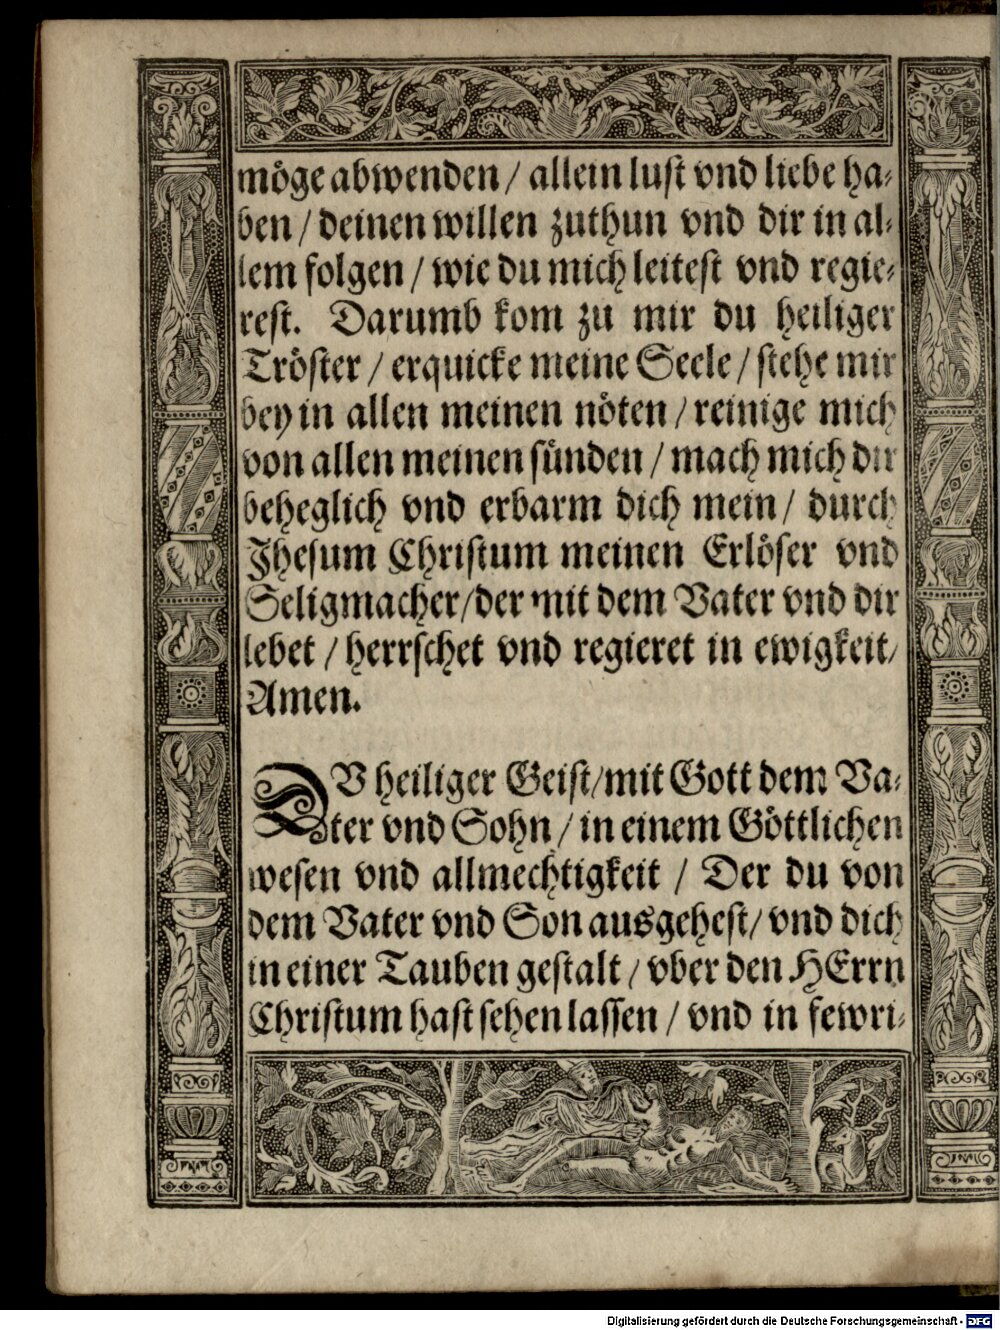 möge abwenden / allein lust vnd liebe ha-
ben / deinen willen zuthun vnd dir in al-
lem folgen / wie du mich leitest vnd regie-
rest. Darumb kom zu mir du heiliger
Tröster / erquicke meine Seele / stehe mir
bey in allen meinen nöten / reinige mich
von allen meinen sünden / mach mich dir
beheglich vnd erbarm dich mein / durch
Jhesum Christum meinen Erlöser vnd
Seligmacher / der mit dem Vater vnd dir
lebet / herrschet vnd regieret in ewigkeit /
Amen.
DV heiliger Geist / mit Gott dem Va-
ter vnd Sohn / in einem Göttlichen
wesen vnd allmechtigkeit / Der du von
dem Vater vnd Son ausgehest / vnd dich
in einer Tauben gestalt / vber den HErrn
Christum hast sehen lassen / vnd in fewri-
Digitalisierung gefördert durch die Deutsche Forschungsgemeinschaft - DFG